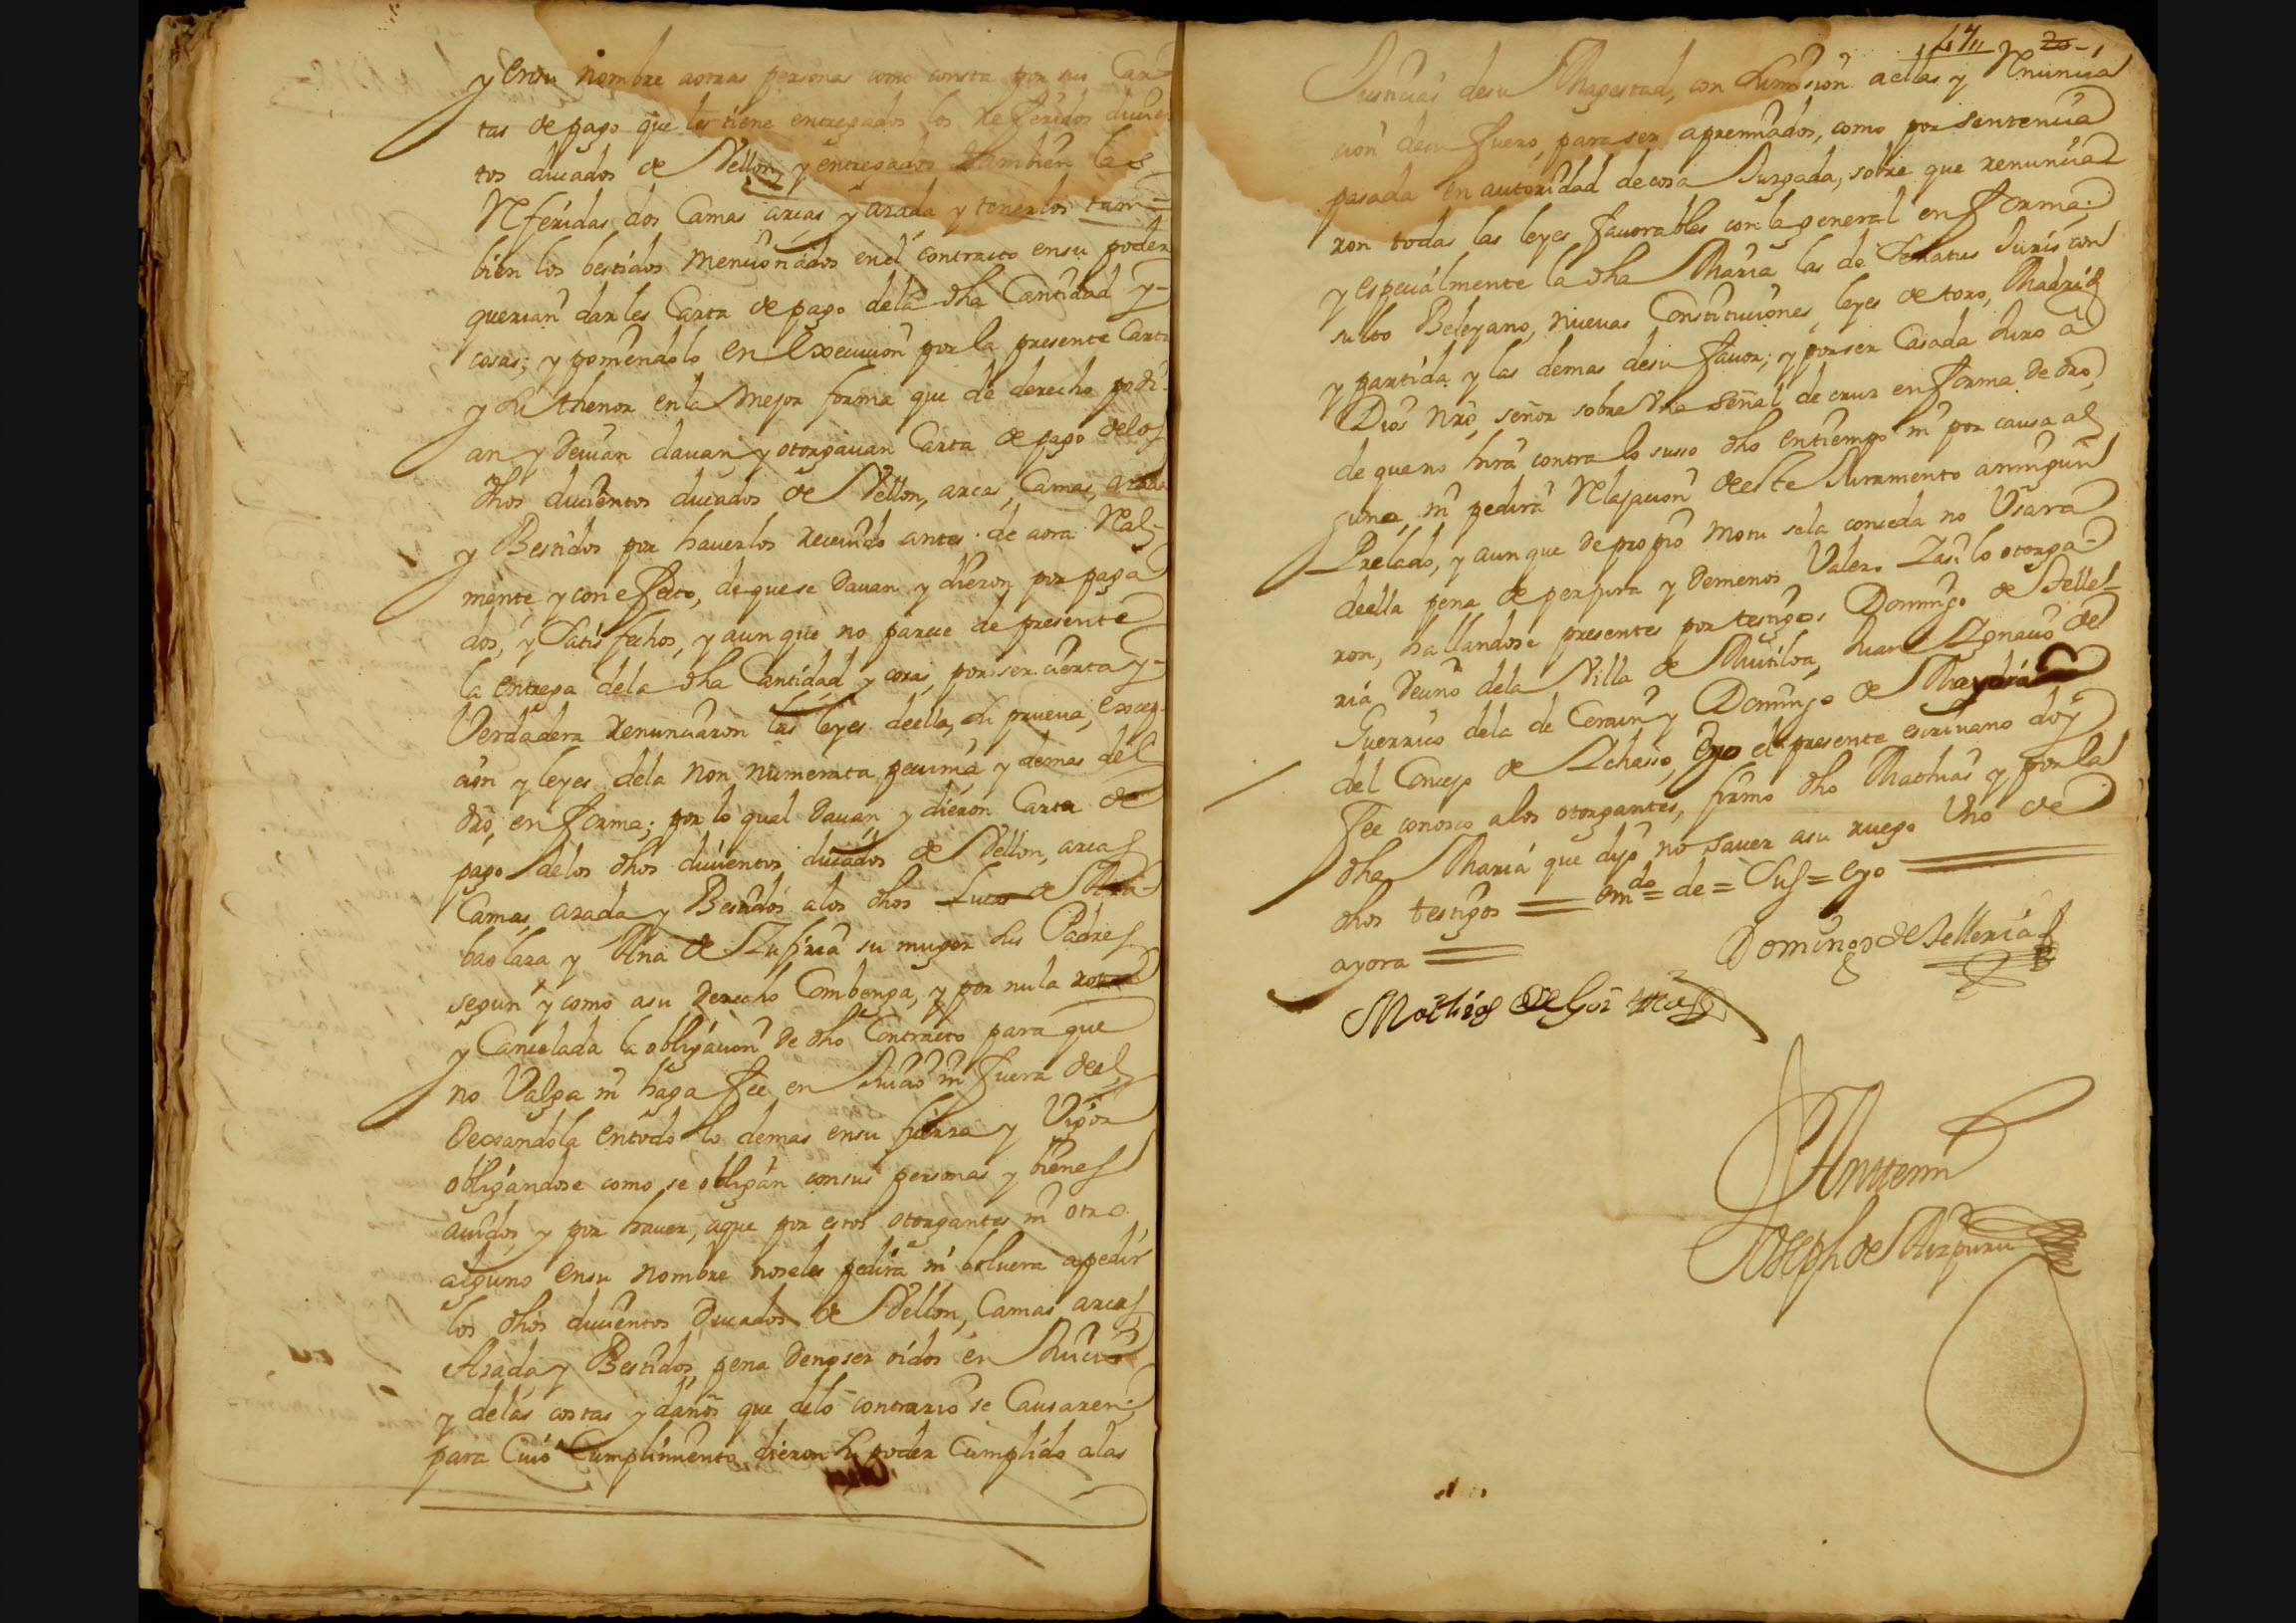 y en su nombre a otras personas como consta por sus Car
tas de pago que les tiene entregados los referidos ducien
tos ducados de Vellon, y entregados tambien las
Referidas dos Camas arcas y azada y tenerlos tam=
bien los bestidos mencionados en el contracto en su poder
querian darles Carta de pago de la dha Cantidad y
cosas; y poniendolo en Execucion por la presente Carta
y su thenor en la mejor forma que de derecho podi-
an y devian davan y otorgavan Carta de pago de los
dhos ducientos ducados de Vellon, arcas, Camas, azada
y Bestidos por haverlos recevido antes de aora Real-
mente y con efecto, de que se davan y dieron por paga
dos, y satisfechos, y aunque no parece de presente
la entrega de la dha Cantidad y cosas, por ser cierta y
Verdadera renunciaron las leyes de ella, su prueva, excep-
cion y leyes de la non numerata pecunia y demas del
dro, en forma; por lo qual davan y dieron Carta de
pago de los dhos ducientos ducados de Vellon, arcas
Camas, azada y Bestidos a los dhos Lucas de
baolaza y Ana de Azufrea su muger sus Padres
segun y como a su derecho Combenga, y por nula rota
y Cancelada la obligacion de dho Contracto para que
no Valga ni haga fee en Juicio ni fuera de el,
dexandola en todo lo demas en su fuerza y Vigor
obligandose como se obligan con sus personas y bienes
avidos y por haver, a que por estos otorgantes ni otro
alguno en su nombre no se les pedira ni bolvera a pedir
los dhos ducientos Ducados de Vellon, Camas arcas
Azada y Bestidos, pena de no ser oidos en Juicio
y de las costas y daños que de lo contrario se Causaren;
para Cuio Cumplimiento dieron su poder Cumplido a las
47 20
Justicias de su Magestad, con sumision a ellas y Renuncia
cion de su fuero, para ser apremiados, como por sentencia
pasada en autoridad de cosa Juzgada, sobre que renuncia
ron todas las leyes favorables con la general en forma;
y especialmente la dha Maria las de Senatus Juris con
sulto Beleyano, nuevas Constituciones, leyes de toro, Madrid
y partida y las demas de su favor; y por ser Casada Juro a
Dios Nro, señor sobre Vna señal de cruz en forma de dro,
de que no hira contra lo suso dho en tiempo ni por causa al
guna, ni pedira Relajacion de este Juramento a ningun
Prelado, y aunque de propio motu se la conceda no Vsara
de ella pena de perjura y de menos Valer. Y asi lo otorga-
ron, hallandose presentes por testigos Domingo de Telle
ria Vecino de la Villa de Mutiloa, Juan Ignacio de
Guerrico de la de Cerain y Domingo de Mayora
del Concejo de Ichasso, Eyo el presente escrivano doy
fee conosco a los otorgantes, firmo dho Mathias y por la
dha Maria que dijo no saver a su ruego Vno de
dhos testigos = emdo = de = sus = Eyo =
ayora =
Domingo de Telleria
Mathias de Goi
Antemi
Joseph de Aizpuru